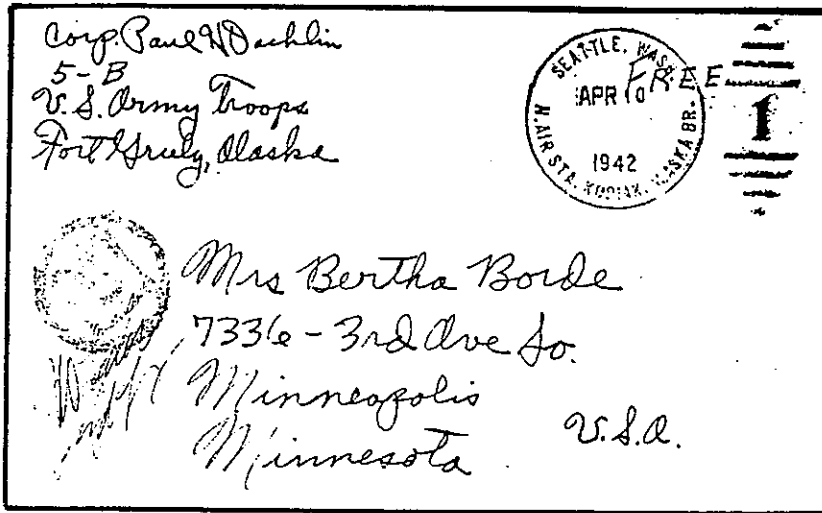 Corp. Paul W Dachlin
5-B
U.S. Army Troops
Fort Greely, Alaska
SEATTLE, WASH
FREE
APR 10
1942
N. AIR STA. KODIAK, ALASKA BR.
1
Mrs Bertha Borde
7336 - 3rd Ave So.
Minneapolis
Minnesota
U.S.A.